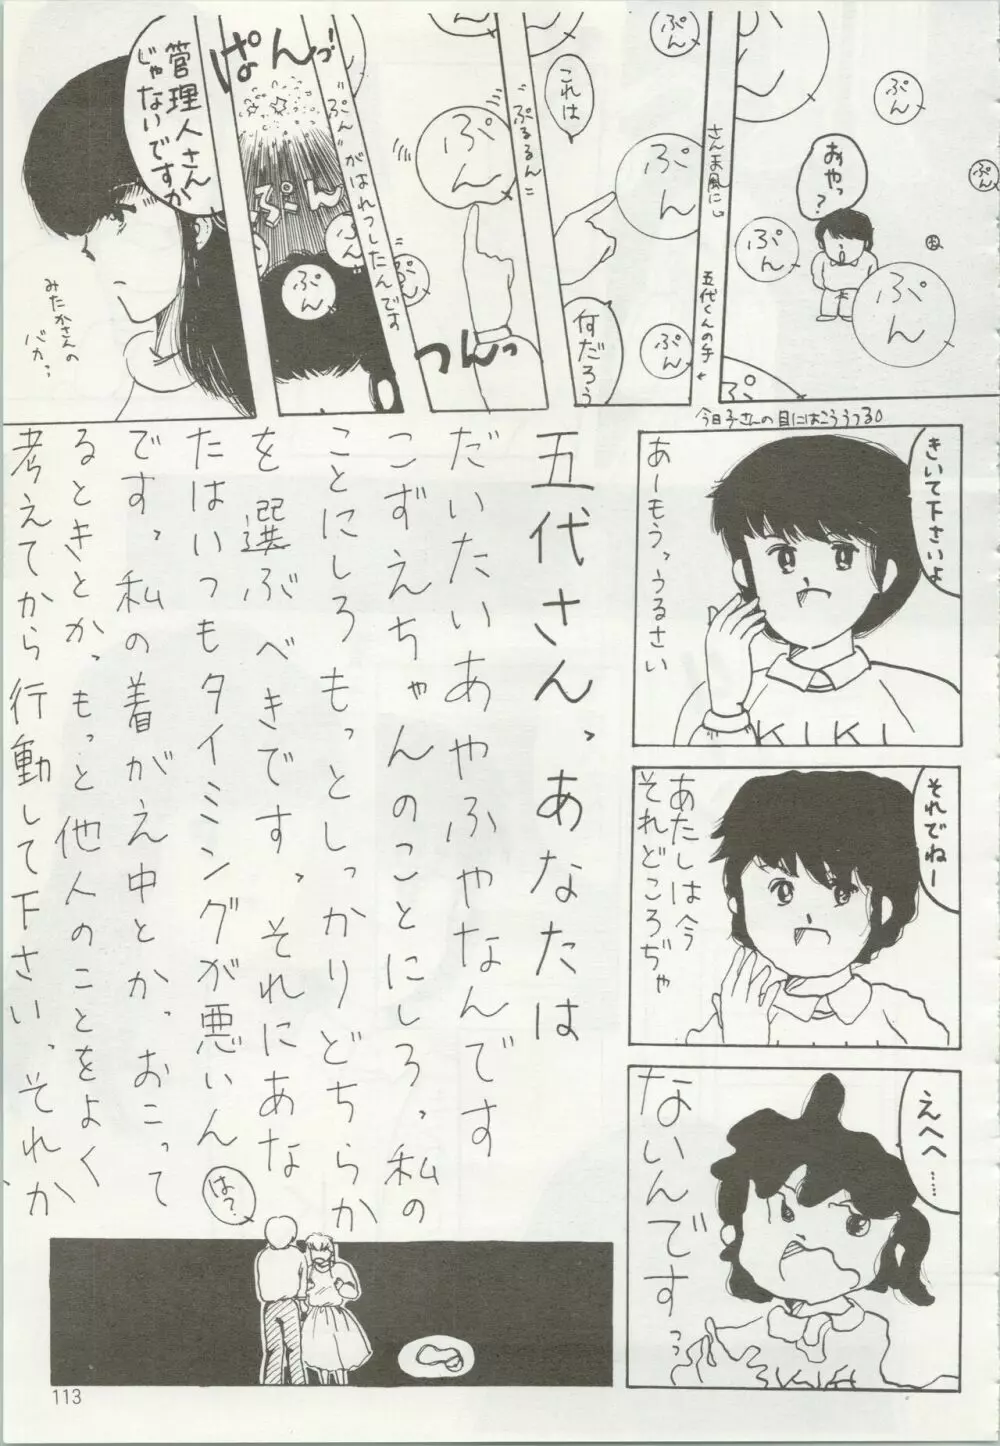 ぷん
ぷん
ぷん
おやっ?
ぷん
ぷん
さんま風に
五代くんの手
ぷん
これは
ぷん
何だろう
ぷん
ぷるるん
ぷん
つんっ
"ぷん"がはれつしたんです
ぱんっ!
ぷん
ぷん
ぷん
ぷん
管理人さん
じゃないですか
みたかさんの
バカっ
今日子さんの目にはこううつる
きいて下さいよ
あーもうっうるさい
KIKI
それでねー
あたしは今
それどころぢゃ
えへへ……
ないんですっ
五代さん、あなたは
だいたいあやふやなんです
こずえちゃんのことにしろ、私の
ことにしろもっとしっかりどちらか
を選ぶべきです。それにあな
たはいつもタイミングが悪いん
です、私の着がえ中とか、おこって
るときとか、もっと他人のことをよく
考えてから行動して下さい、それか
は?
113